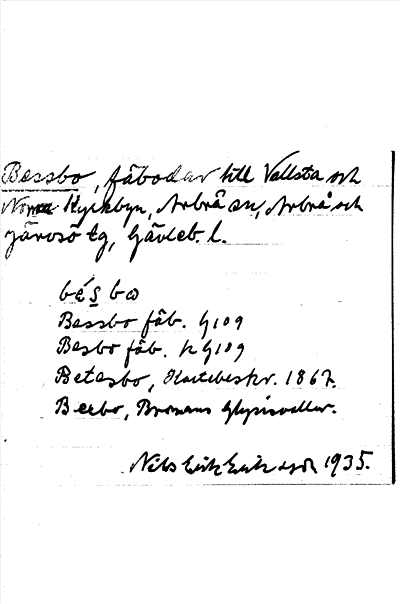 Bessbo, fäbodar till Vallsta och
Norra Kyrkbyn, Arbrå sn, Arbrå och
Järvsö tg, Gävleb. l.
bés bω
Bessbo fäb. G109
Besbo fäb. K G109
Betesbo, Hartebeskr. 1867.
Beebo, Bromans Glysisvallur.
Nils Erik Eriksson 1935.